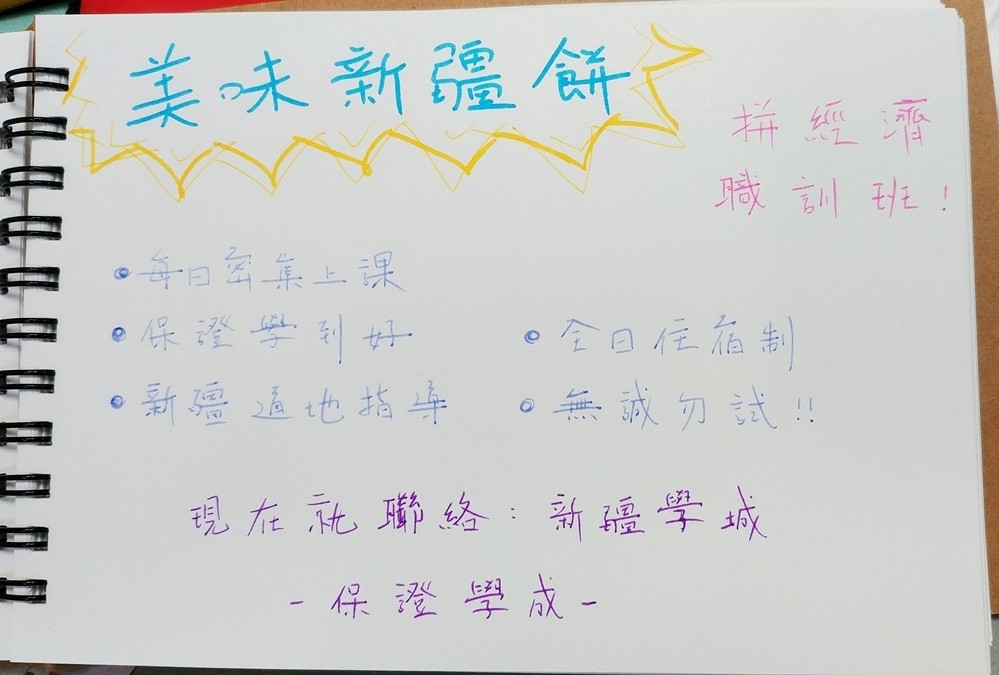 美味新疆餅
拼經濟
職訓班!
• 每日密集上課
• 保證學到好
• 新疆道地指導
• 全日住宿制
• 無誠勿試!!
現在就聯絡:新疆學城
-保證學成-